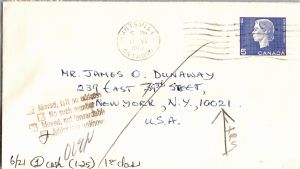 ONTARIO
5
CANADA
MR. JAMES O. DUNAWAY
239 EAST 79TH STREET,
NEW YORK, N.Y., 10021
U.S.A.
Moved, left no address
No such number
Moved, not forwardable
Addressee unknown
yes
6/21 ① cash (1.25) / 1st class